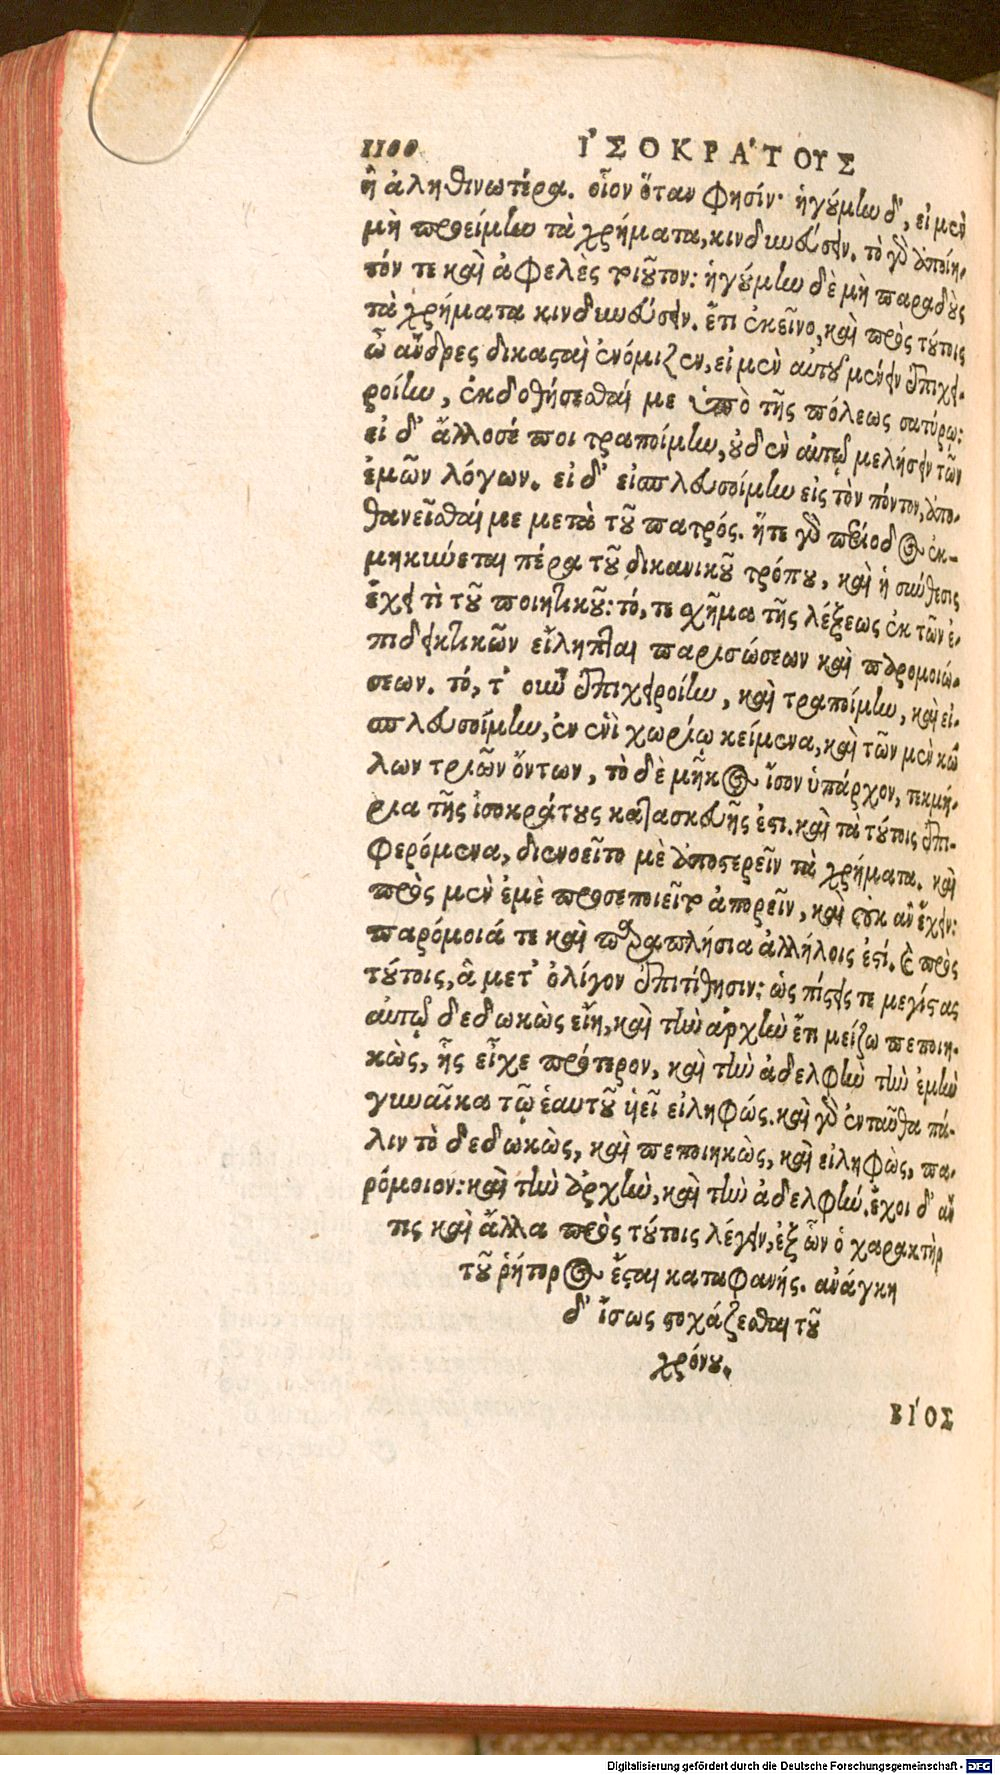 1100 ἸΣΟΚΡΑΤΟΥΣ
ἢ ἀληθινωτέρα. οἷον ὅταν φησίν· ἡγούμην δ', εἰ μὲν
μὴ προείμην τὰ χρήματα, κινδυνεύσειν. τὸ γὰρ ἀποίη-
τόν τε καὶ ἀφελὲς τοιοῦτον: ἡγούμην δὲ μὴ παραδοὺς
τὰ χρήματα κινδυνεύσειν. ἔτι ἐκεῖνο, καὶ πρὸς τούτοις
ὦ ἄνδρες δικασταὶ ἐνόμιζον, εἰ μὲν αὐτοῦ μένειν ἐπιχει-
ροίην, ἐκδοθήσεσθαί με ὑπὸ τῆς πόλεως σατύρῳ:
εἰ δ' ἄλλοσέ ποι τραποίμην, οὐδὲν αὐτῷ μελήσειν τῶν
ἐμῶν λόγων. εἰ δ' εἰσπλευσοίμην εἰς τὸν πόντον, ἀπο-
θανεῖσθαι με μετὰ τοῦ πατρός. ἥτε γὰρ περίοδος ἐκ-
μηκύεται πέρα τοῦ δικανικοῦ τρόπου, καὶ ἡ σύνθεσις
ἔχει τὶ τοῦ ποιητικοῦ: τό, τε σχῆμα τῆς λέξεως ἐκ τῶν ἐ-
πιδεικτικῶν εἴληπται παρισώσεων καὶ παρομοιώ-
σεων. τό, τ' οὖν ἐπιχειροίην, καὶ τραποίμην, καὶ εἰ-
σπλευσοίμην, ἐν ἑνὶ χωρίῳ κείμενα, καὶ τῶν μὲν κώ
λων τριῶν ὄντων, τὸ δὲ μῆκος ἴσον ὑπάρχον, τεκμή-
ρια τῆς ἰσοκράτους κατασκευῆς ἐστι. καὶ τὰ τούτοις ἐπι-
φερόμενα, διενοεῖτο μὲ ἀποστερεῖν τὰ χρήματα. καὶ
πρὸς μὲν ἐμὲ προσεποιεῖτο ἀπορεῖν, καὶ οὐκ ἂν ἔχειν:
παρόμοιά τε καὶ παραπλήσια ἀλλήλοις ἐστί. καὶ πρὸς
τούτοις, ἃ μετ' ὀλίγον ἐπιτίθησιν: ὡς πίστεις τε μεγίστας
αὐτῷ δεδωκὼς εἴη, καὶ τὴν ἀρχὴν ἔτι μείζω πεποιη-
κὼς, ἧς εἶχε πρότερον, καὶ τὴν ἀδελφὴν τὴν ἐμὴν
γυναῖκα τῷ ἑαυτοῦ ὑεῖ εἰληφώς. καὶ γὰρ ἐνταῦθα πά-
λιν τὸ δεδωκὼς, καὶ πεποιηκὼς, καὶ εἰληφὼς, πα-
ρόμοιον: καὶ τὴν ἀρχὴν, καὶ τὴν ἀδελφήν. ἔχοι δ' ἄν
τις καὶ ἄλλα πρὸς τούτοις λέγειν, ἐξ ὧν ὁ χαρακτὴρ
τοῦ ῥήτορος ἔσται καταφανής. ἀνάγκη
δ' ἴσως στοχάζεσθαι τοῦ
χρόνου.
ΒΙΌΣ
Digitalisierung gefördert durch die Deutsche Forschungsgemeinschaft - DFG